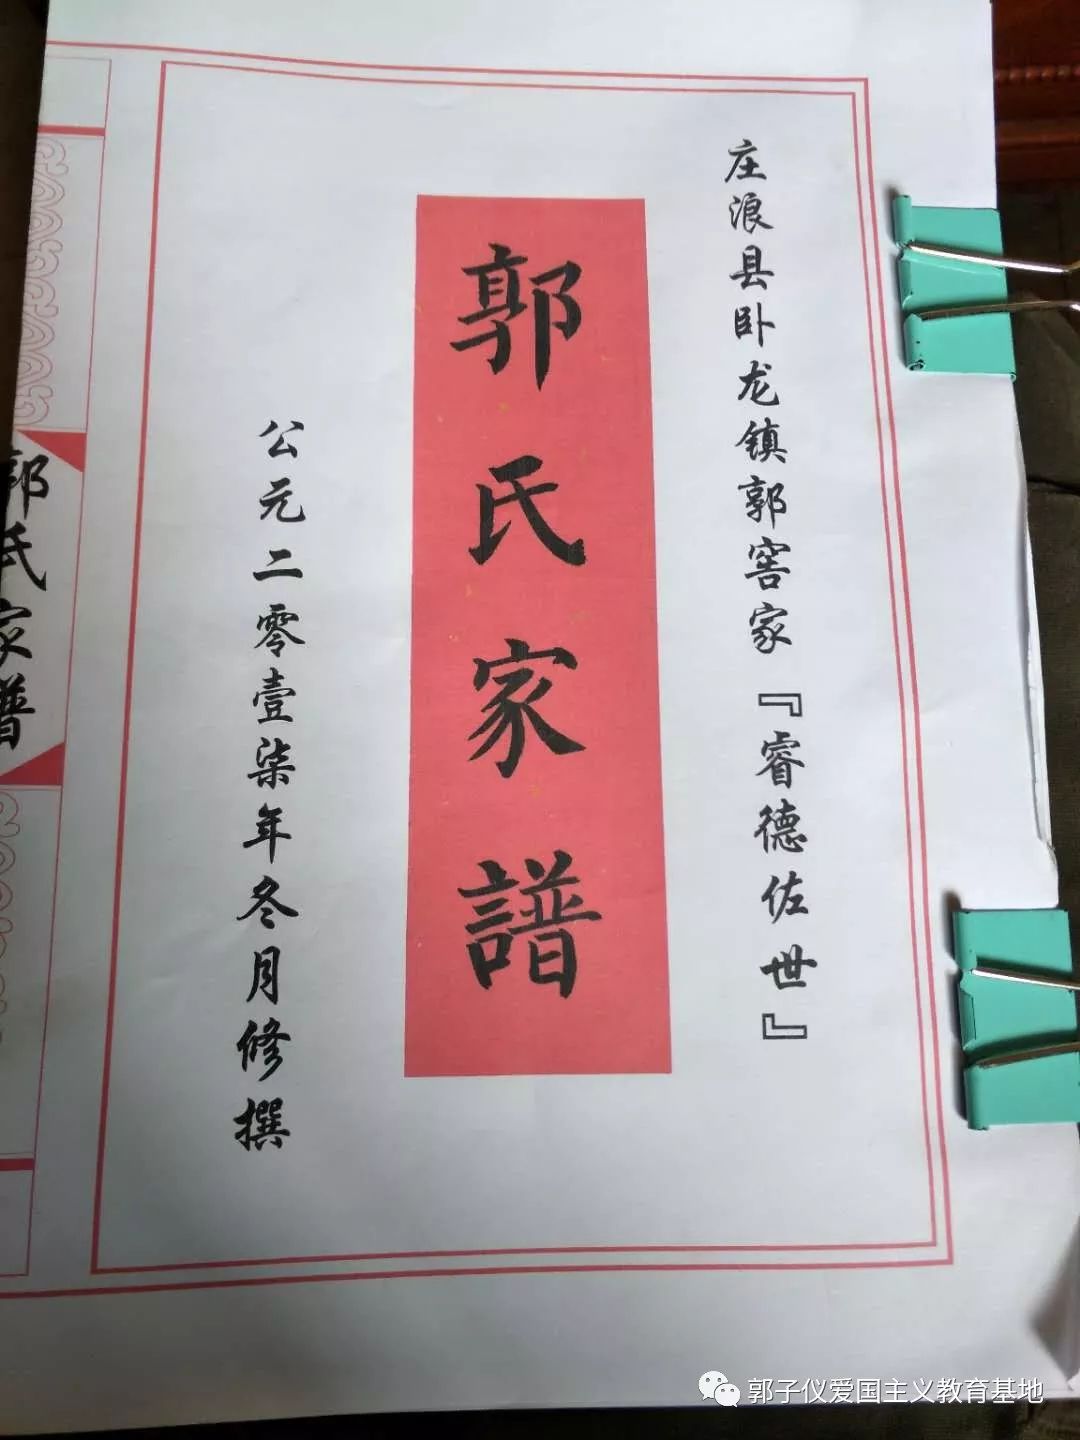 庄浪县卧龙镇郭窖家『睿德佐世』
郭氏家譜
公元二零壹柒年冬月修撰
郭氏家譜
郭子仪爱国主义教育基地